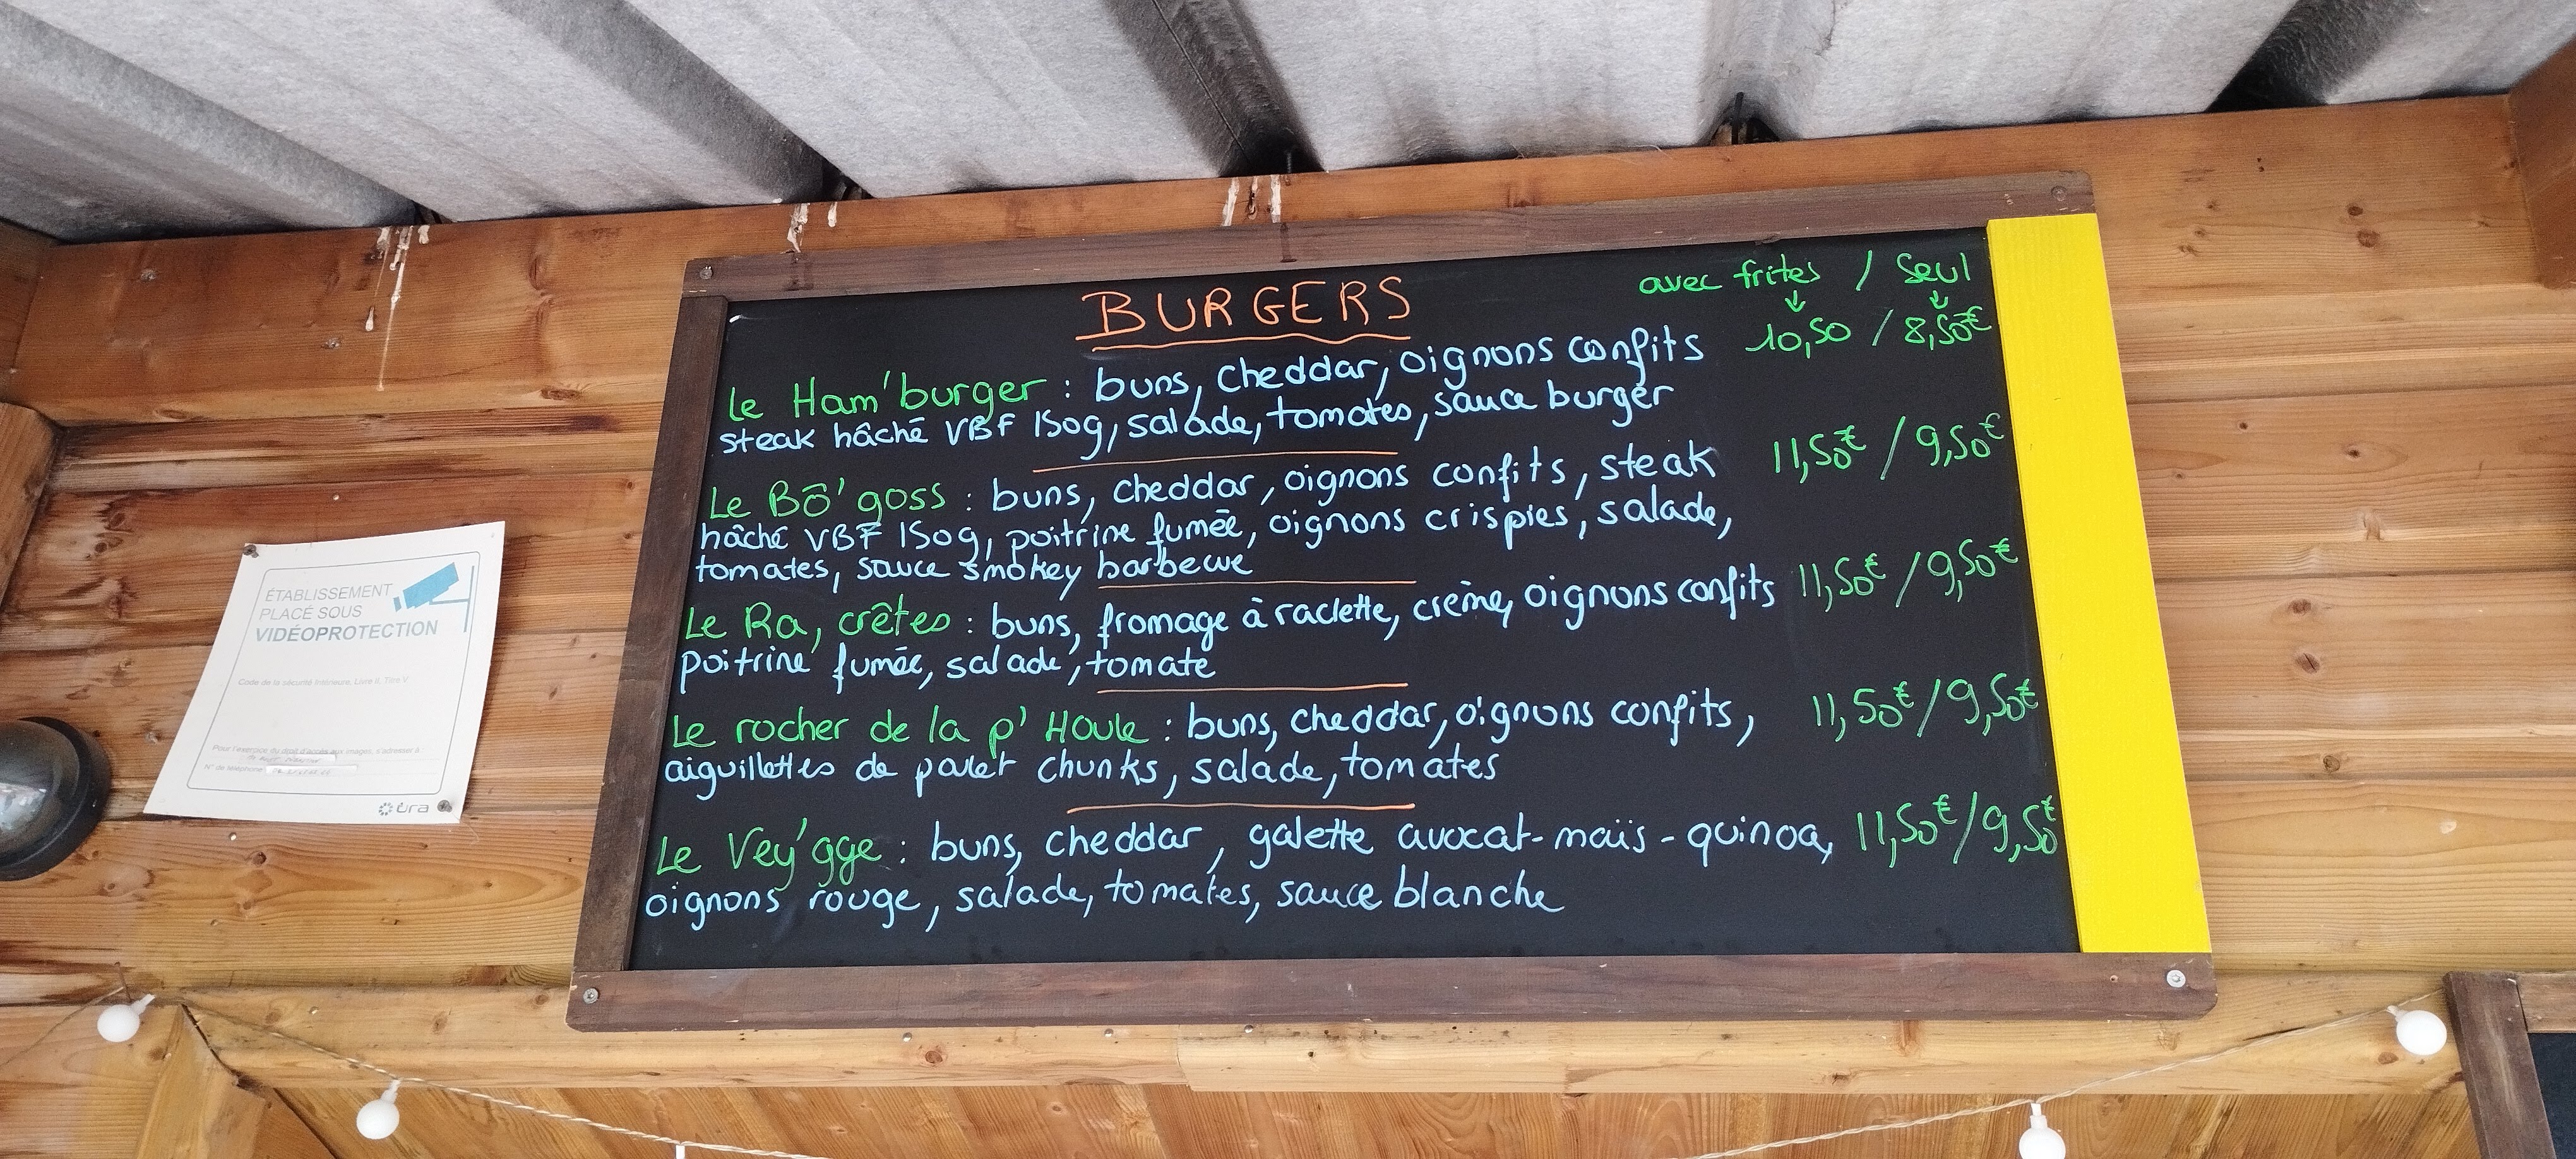 BURGERS
avec frites / Seul
10,50 / 8,50€
Le Ham'burger : buns, cheddar, oignons confits
steak hâché VBF 150g, salade, tomates, sauce burger
11,50€ / 9,50€
Le Bô'goss : buns, cheddar, oignons confits, steak
hâché VBF 150g, poitrine fumée, oignons crispies, salade,
tomates, sauce smokey barbecue
Le Ra, crêtes : buns, fromage à raclette, crème, oignons confits 11,50€ / 9,50€
poitrine fumée, salade, tomate
Le rocher de la p'Houle : buns, cheddar, oignons confits, 11,50€ / 9,50€
aiguillettes de poulet chunks, salade, tomates
Le Vey'gge : buns, cheddar, galette avocat-maïs-quinoa, 11,50€ / 9,50€
oignons rouge, salade, tomates, sauce blanche
ÉTABLISSEMENT
PLACÉ SOUS
VIDÉOPROTECTION
Code de la sécurité intérieure, Livre II, Titre V
Pour l'exercice du droit d'accès aux images, s'adresser à :
N° de téléphone